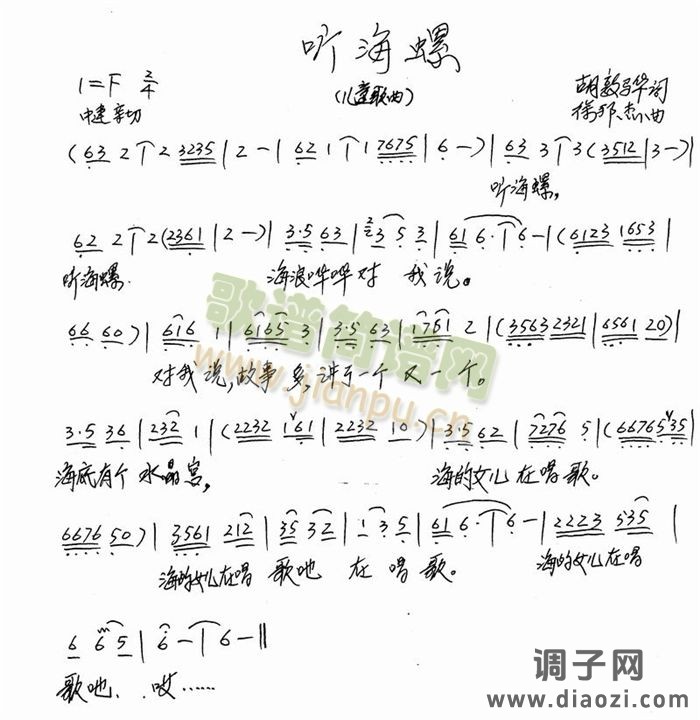 听海螺
(儿童歌曲)
1=F 2/4
中速 亲切
(63 2 1 2 3235 | 2 — | 62 1 1 1 7675 | 6 —) | 63 3 1 3 (3512 | 3 —) |
听海螺,
62 2 1 2 (2361 | 2 —) | 3·5 63 | 3 5 3 | 61 6· 1 6 — | (6123 1653 |
听海螺. 海浪哗哗对 我 说。
66 60) | 616 1 | 6165 3 | 3·5 63 | 1761 2 | (3563 2321 | 6561 20) |
对我 说,故事 多,讲了一个 又 一 个。
3·5 36 | 232 1 | (2232 161 | 2232 10) | 3·5 62 | 7276 5 | (66765 35 |
海底有个 水晶宫, 海的女儿 在唱歌。
6676 50) | 3561 212 | 35 32 | 1 3 5 | 61 6· 1 6 — | 2223 535 |
海的女儿在唱 歌吔 在 唱 歌。 海的女儿在唱
6 6 5 | 6 — 1 6 — ‖
歌吔、 哎……
歌谱简谱网
www.jianpu.cn
调子网
www.diaozi.com